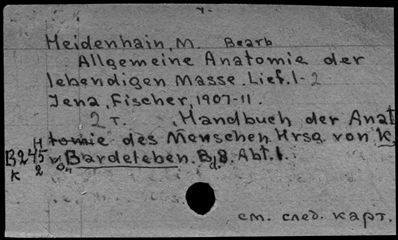 Heidenhain, M. Bearb
Allgemeine Anatomie der
lebendigen Masse. Lief. 1-2
Jena, Fischer, 1907-11.
2 т. , Handbuch der Anat
tomie des Menschen. Hrsg von K.
v. Bardeleben. Bd 8. Abt. 1.
В 245
см. след. карт.